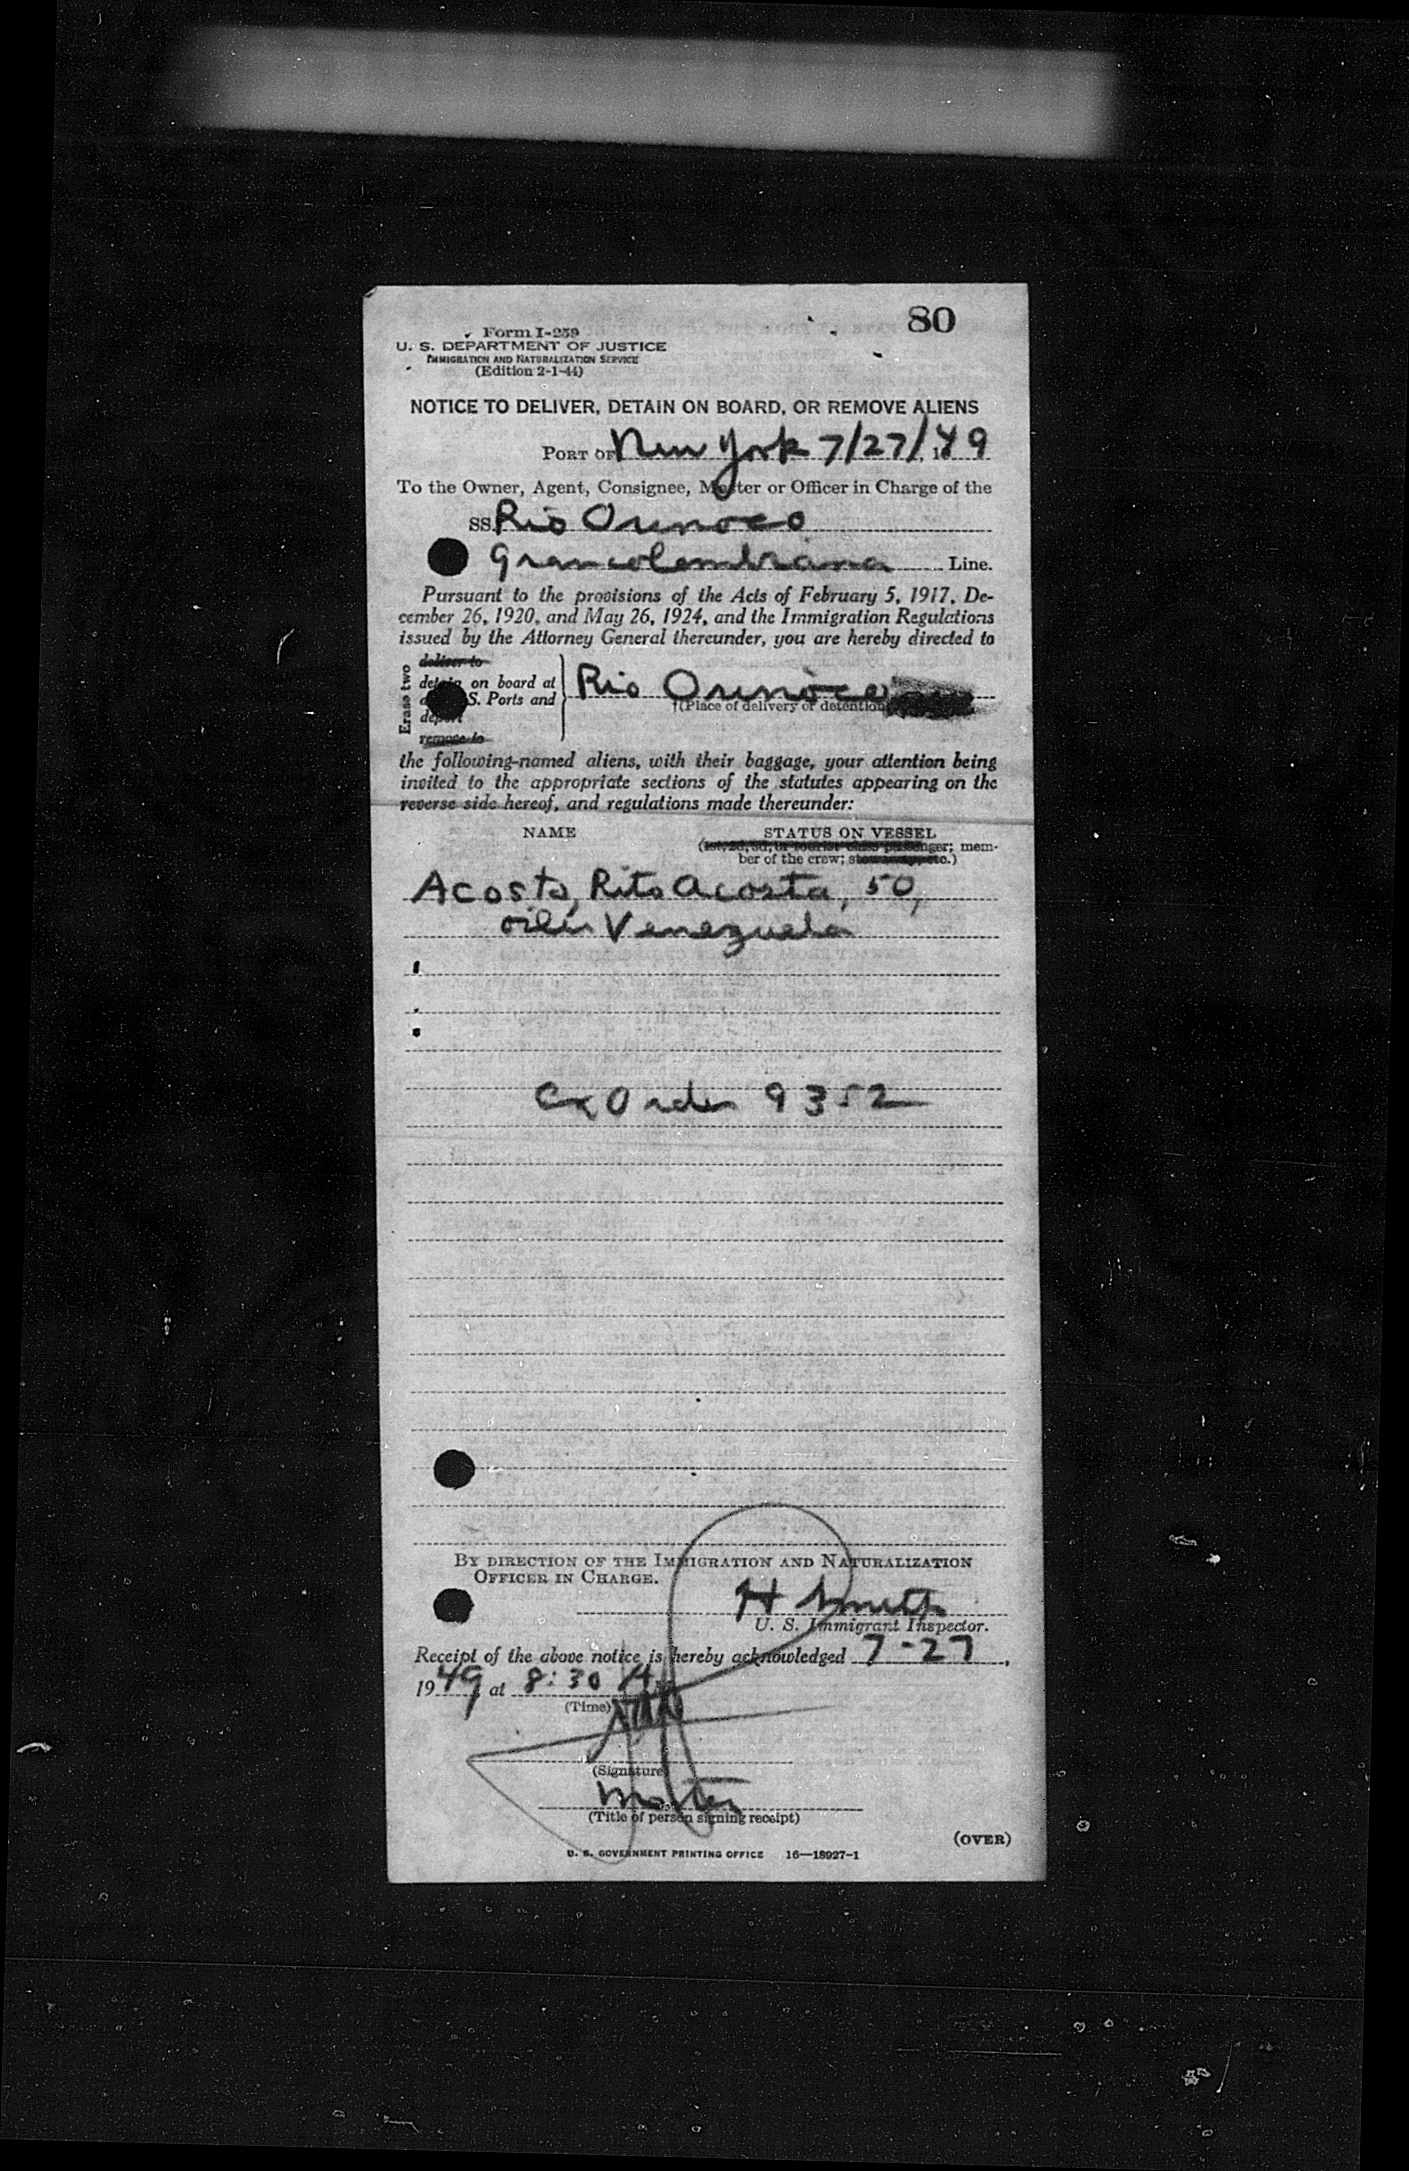 80
Form I-259
U. S. DEPARTMENT OF JUSTICE
IMMIGRATION AND NATURALIZATION SERVICE
(Edition 2-1-44)
NOTICE TO DELIVER, DETAIN ON BOARD, OR REMOVE ALIENS
PORT OF New York 7/27/, 1949
To the Owner, Agent, Consignee, Master or Officer in Charge of the
SS. Rio Orinoco
Grancolombiana Line.
Pursuant to the provisions of the Acts of February 5, 1917, De-
cember 26, 1920, and May 26, 1924, and the Immigration Regulations
issued by the Attorney General thereunder, you are hereby directed to
Erase two
deliver to
detain on board at
S. Ports and
deport
remove to
Rio Orinoco
(Place of delivery or detention
the following-named aliens, with their baggage, your attention being
invited to the appropriate sections of the statutes appearing on the
reverse side hereof, and regulations made thereunder:
NAME STATUS ON VESSEL
(1st, 2d, 3d, or tourist class passenger; mem-
ber of the crew; stowaway, etc.)
Acosta, Rito Acosta, 50,
oiler Venezuela
Ex Order 9352
BY DIRECTION OF THE IMMIGRATION AND NATURALIZATION
OFFICER IN CHARGE.
H Smith
U. S. Immigrant Inspector.
Receipt of the above notice is hereby acknowledged 7-27,
1949, at 8:30 A
(Time)
(Signature)
Master
(Title of person signing receipt)
(OVER)
U. S. GOVERNMENT PRINTING OFFICE 16—18927-1